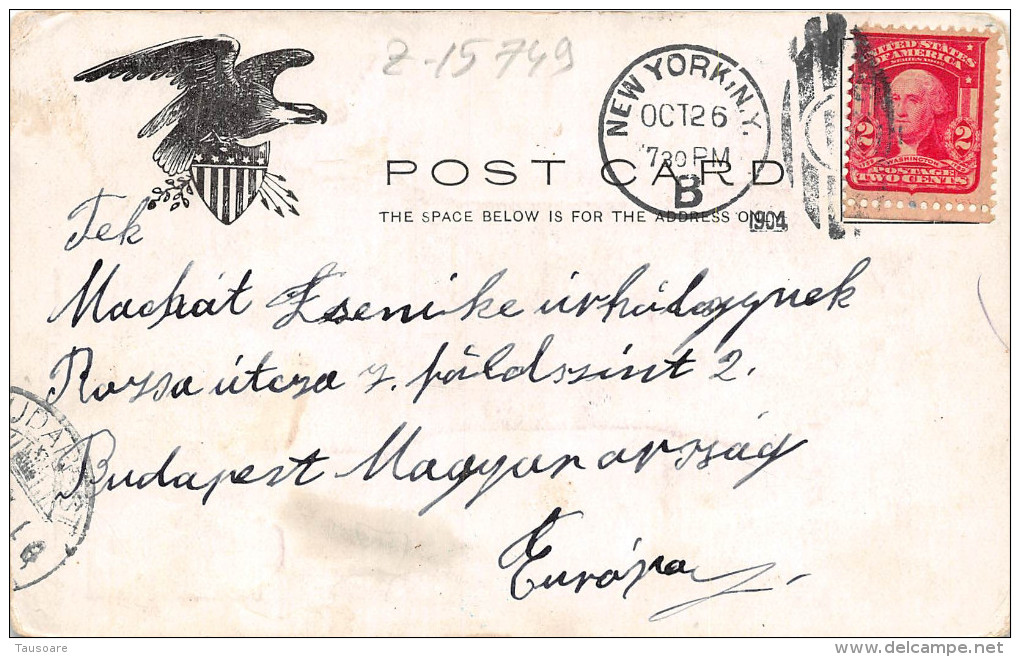 Z-15749
NEW YORK, N.Y.
OCT 26
7 30 PM
B
1904
UNITED STATES
OF AMERICA
SERIES 1902
2 2
WASHINGTON
POSTAGE
TWO CENTS
POST CARD
THE SPACE BELOW IS FOR THE ADDRESS ONLY
Tek
Machát Zsenike úrhölgynek
Rozsa útcza 7. földszint 2.
Budapest Magyarország
Európa
UDAPEST
Tausoare
delcampe.net